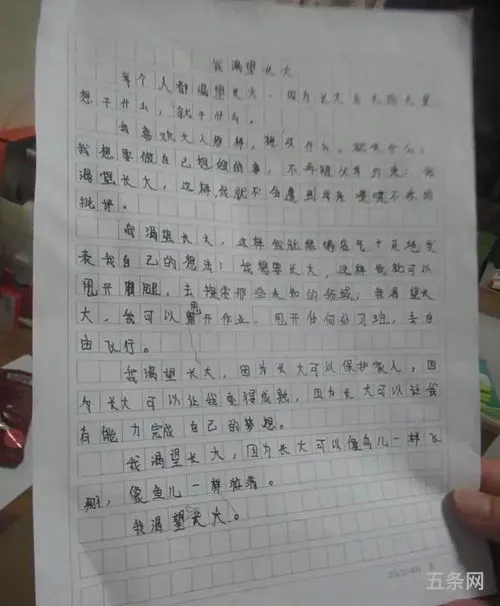 我渴望长大
每个人都渴望长大，因为长大自无拘无束
想干什么，就干什么。
我喜欢大人那样，想买什么，就买什么，
我想要做自己想做的事，不再被父母约束；我
渴望长大，这样，我就不会遭到母亲喋喋不休的
批评。
我渴望长大，这样我就能够底气十足地发
表我自己的想法；我想要长大，这样我就可以
甩开腿，去探索那些未知的领域；我渴望长
大，我可以甩开作业，甩开任何补习班，去自
由飞行。
我渴望长大，因为长大可以保护家人，因
为长大可以让我变得成熟，因为长大可以让我
有能力完成自己的梦想。
我渴望长大，因为长大可以像鸟儿一样飞
翔，像鱼儿一样游
我渴望长大。
五条网